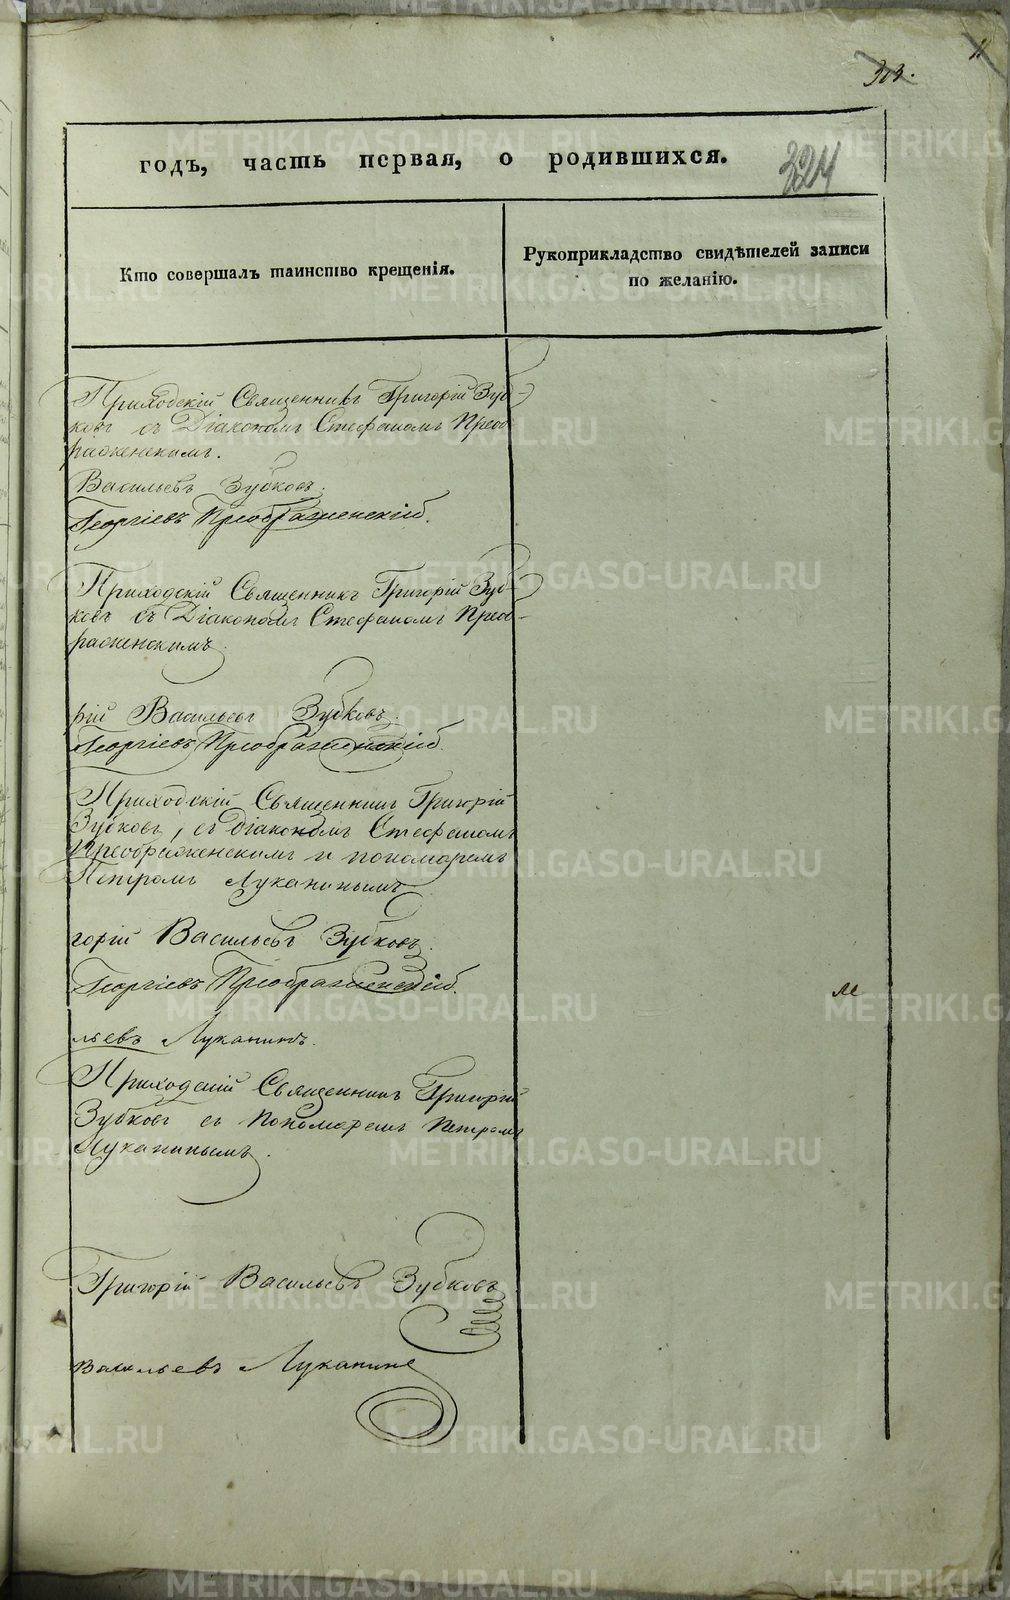 313.
324
годъ, часть первая, о родившихся.
Кто совершалъ таинство крещенія.
Рукоприкладство свидѣтелей записи
по желанію.
Приходскій Священникъ Григорій Зуб-
ковъ съ Діакономъ Стефаномъ Преоб-
раженскимъ.
Васильевъ Зубковъ.
Георгіевъ Преображенскій.
Приходскій Священникъ Григорій Зуб-
ковъ съ Діакономъ Стефаномъ Преоб-
раженскимъ
рій Васильевъ Зубковъ.
Георгіевъ Преображенскій.
Приходскій Священникъ Григорій
Зубковъ, съ діакономъ Стефаномъ
Преображенскимъ и пономаремъ
Петромъ Луканинымъ
горій Васильевъ Зубковъ.
Георгіевъ Преображенскій.
льевъ Луканинъ.
Приходскій Священникъ Григорій
Зубковъ съ Пономаремъ Петромъ
Луканинымъ.
Григорій Васильевъ Зубковъ
Васильевъ Луканинъ
METRIKI.GASO-URAL.RU